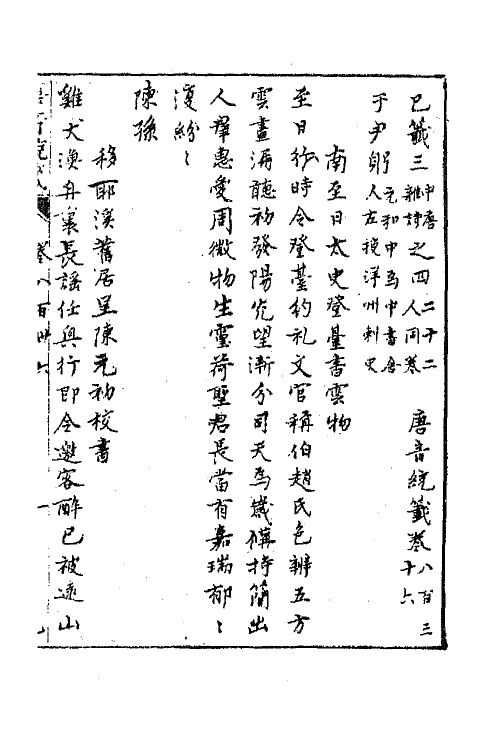 己籤三中唐雜詩之四二十二人同卷 唐音統籤卷八百三十六
于尹躬元和中為中書舍人左授洋州刺史
南至日太史登臺書雲物
至日行時令登臺約礼文官稱伯趙氏色辨五方
雲晝漏聽初發陽光望漸分司天為歲備持簡出
人羣惠愛周微物生靈荷聖君長當有嘉瑞郁〻
復紛〻
陳孫
移耶溪舊居呈陳元初校書
雞犬漁舟裏長謠任興行即令邀客醉已被遠山
卷八百卅六 一